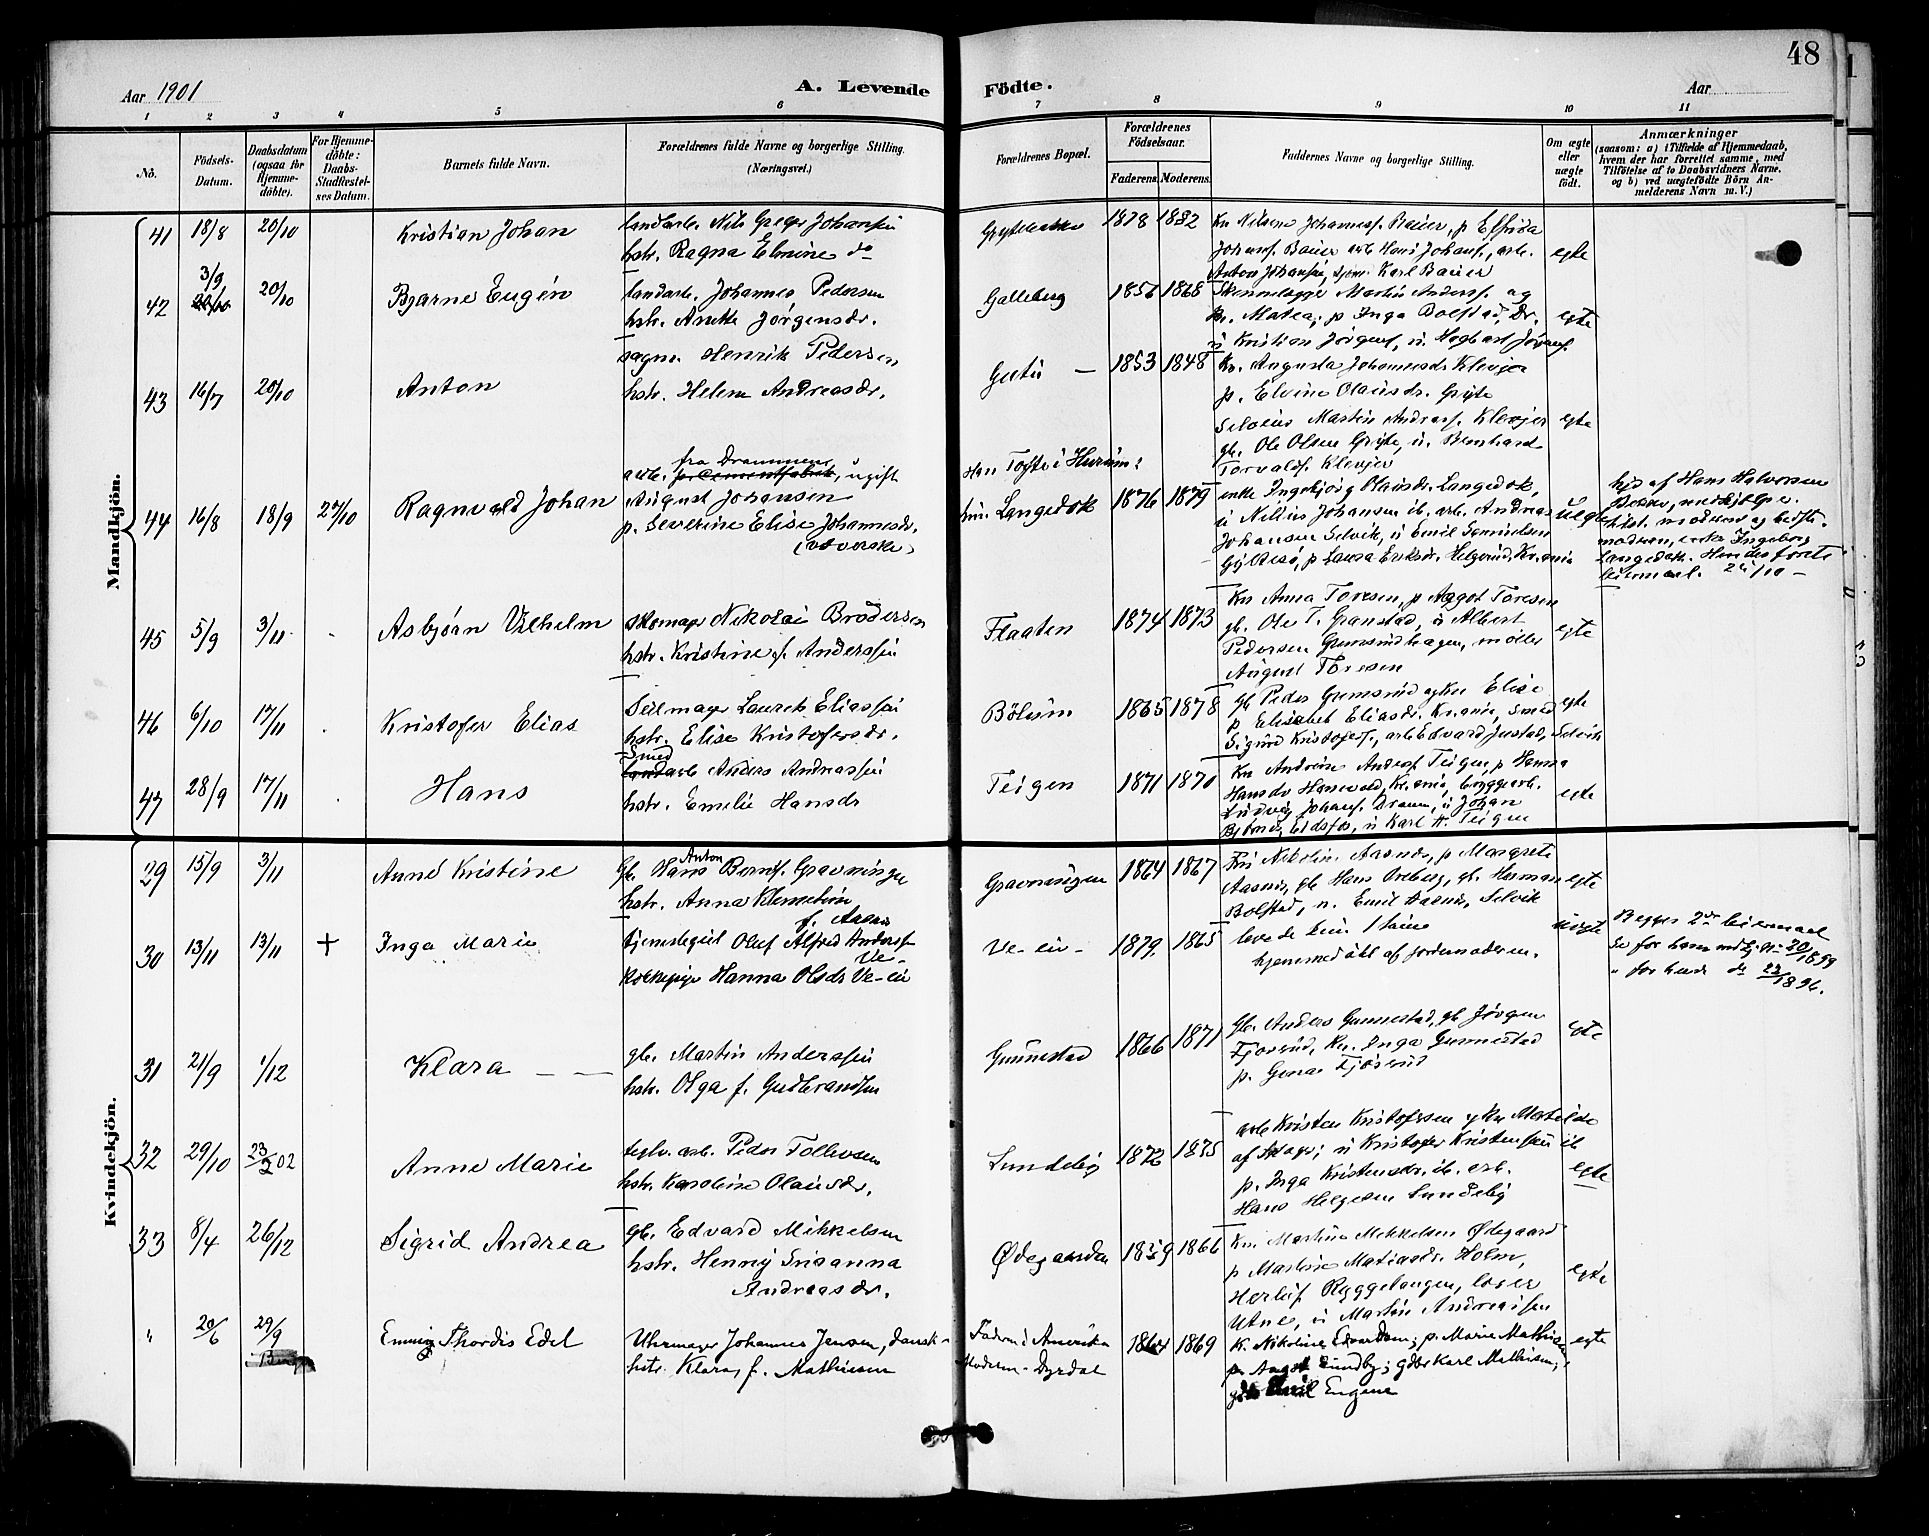 48
Aar 1901
A. Levende
Födte.
Aar
1 2 3 4 5 6 7 8 9 10 11
No.
Födsels-Datum.
Daabsdatum (ogsaa for Hjemme-döbte).
For Hjemme-döbte: Daabs-Stadfæstel-ses Datum.
Barnets fulde Navn.
Forældrenes fulde Navne og borgerlige Stilling. (Næringsvei.)
Forældrenes Bopæl.
Forældrenes Födselsaar.
Faderens. Moderens.
Faddernes Navne og borgerlige Stilling.
Om ægte eller uægte født.
Anmærkninger
(saasom: a) i Tilfælde af Hjemmedaab, hvem der har forrettet samme, med Tilföielse af to Daabsvidners Navne, og b) ved uægtefödte Börn An-melderens Navn m. V.)
Mandkjön.
41 18/8 20/10 Kristian Johan
landarb. Nils Greger Johansen
hstr. Ragna Elmine do
1878 1882
Johans. Bauer arb Hans Johans., arb.
Anton Johansen, Karl Bauer
egte
42 3/9 20/10 Bjarne Eugén
landarb. Johannes Pedersen
hstr. Anette Jörgensdr.
Galleberg 1856 1868
Martin Anders. og
Kr. Matea; p Inga Bolstad, Dr.
u Kristian Jörgens, u. Hagbart Jörgens.
egte
43 16/7 20/10 Anton
sagm. Henrik Pedersen
hstr. Helene Andreasdr.
Gutu — 1853 1848
Kr. Augusta Johannesdr Klevjer
p. Elvine Olausdr. Gryte
Martin Andreas. Klevjer
gb. Ole Olsen Gryte, u. Bernhard
Torvalds. Klevjer
egte
44 16/8 18/9 27/10 Ragnvald Johan
fra Drammen
arb. p. Cementfabrik, ugift
August Johansen
p. Severine Elise Johannesdr.
(væverske)
Han Tofte i Hurum:
hun Langedok 1876 1879
enke Ingebjörg Olausdr. Langedok,
u Nilius Johansen ib. arb. Andreas
Johansen Selvik, u Emil
p Laura Eriksdr. Helgerud, Kr.ania
uegte
hjd af Hans Halvorsen
modren og bedste-
modren, enke Ingeborg
Langedok. Hendes förste
leiermaal. 27/10 —
45 5/9 3/11 Asbjörn Vilhelm
skomager Nikolai Brödersen
hstr. Kristine f. Anderssen
Flaaten 1874 1873
Kr. Anna Toresen, p Aagot Toresen
gb. Ole T. Granstad, u Albert
Pedersen Gunnsrudhagen, möller
August Toresen
egte
46 6/10 17/11 Kristofer Elias
Seilmager Laurits Eliassen
hstr. Elise Kristofersdr.
Bölum 1865 1878
gb Peder Gunnsrud og Kr Elise
p Elisabet Eliasdr. Kr.ania, Smed
Sigurd Kristofers., arb Edvard Justad, Selvik
egte
47 28/9 17/11 Hans
Smed
landarb Anders Andreassen
hstr. Emelie Hansdr
Teigen 1871 1870
Kr Andrine Anders Teigen, p Hanna
Hansdr Hanevold, Kr.ania, bryggearb.
Ludvig Johans. Dram, u Johan
Björnes, Eidsfos, u Karl A. Teigen
egte
Kvindekjön.
29 15/9 3/11 Anne Kristine
Gb. Hans Anton Bernts. Gravningen
hstr. Anna Klemetine
f. Aasnes
Gravningen 1864 1867
Fru Nikoline Aasnes, p Margrete
Aasnes, gb Hans Oreberg, gb. Herman
Bolstad, u. Emil Aasnes, Selvik
egte
30 13/11 13/11 + Inga Marie
tjenestegut Oluf Alfred Anders.
Ve-
Kokkepige Hanna Olsdr Ve-eie
Ve-eie- 1879. 1865
levede kun 1 time
hjemmedöbt af jordemoderen.
uegt
Begges 2det leiermaal
Se for ham 20/1899
" for hende do 23/1896.
31 21/9 1/12 Klara — —
gb. Martin Anderssen
hstr. Olga f. Gudbrandsen
Gunnestad 1866 1871
Gb. Anders Gunnestad, gb Jörgen
Fjösrud, Kr. Inga Gunnestad
p. Gunna Fjösrud
egte
32 29/10 23/2 02 Anne Marie
teglv. arb. Peder Tollevsen
hstr. Karoline Olausdr.
Lundeby 1872 1875
arb Kristen Kristofersen og Kr Matilde
af Skoger; u Kristofer Kristensen ib
p. Inga Kristensdr. ib. arb.
Hans Helgesen Lundeby
egte
33 8/4 26/12 Sigrid Andrea
gb. Edvard Mikkelsen
hstr. Henny Susanna
Andreasdr.
Ødegaarden 1859 1866
Kr. Martine Mikkelsen Ødegaard
p Martine Matiasdr. Holm,
Herlof Ryggetangen, loser
Utne, u Martin Andreassen
egte
" 20/6 29/9 Emmy Thordis Edel
Uhrmager Johannes Jensen, dansk
hstr. Klara, f. Mathiesen
Faderen i Amerika
Moderen - Dyrdal 1864 1869
K. Nikoline Edvardsen; p. Marie Mathisen
p. Aagot Lundby; gdbr Karl Mathisen;
Emil Engene
egte